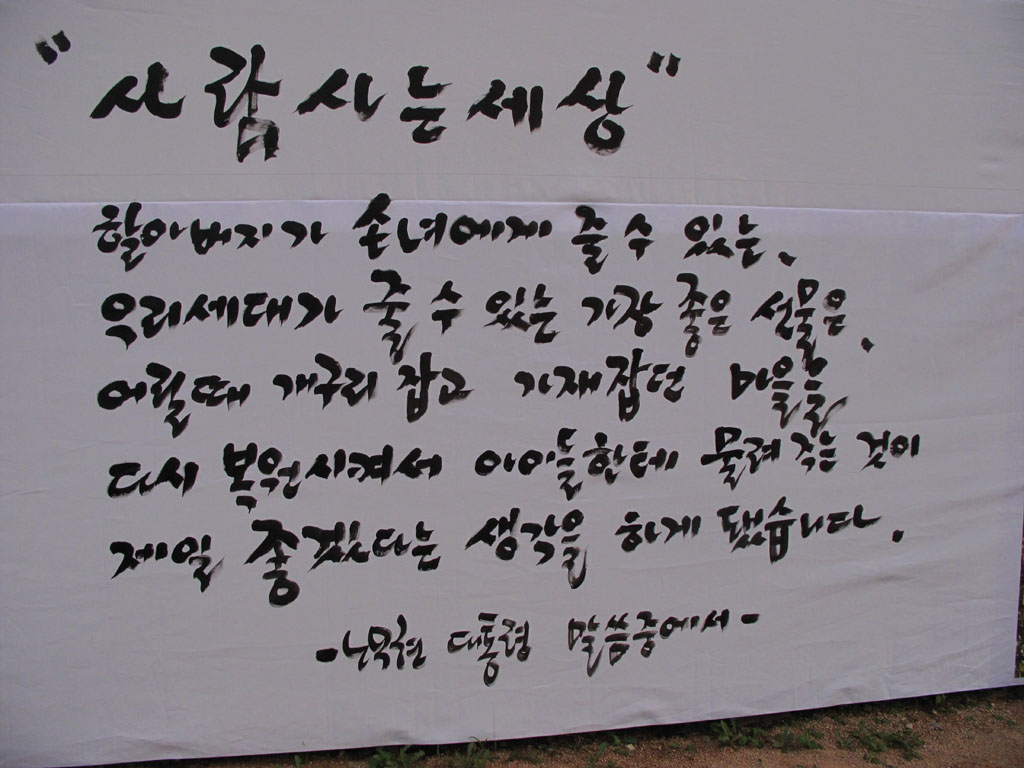 "사람사는세상"
할아버지가 손녀에게 줄 수 있는,
우리세대가 줄 수 있는 가장 좋은 선물은,
어릴때 개구리 잡고 가재잡던 마을을
다시 복원시켜서 아이들한테 물려주는 것이
제일 좋겠다는 생각을 하게 됐습니다.
-노무현 대통령 말씀중에서-